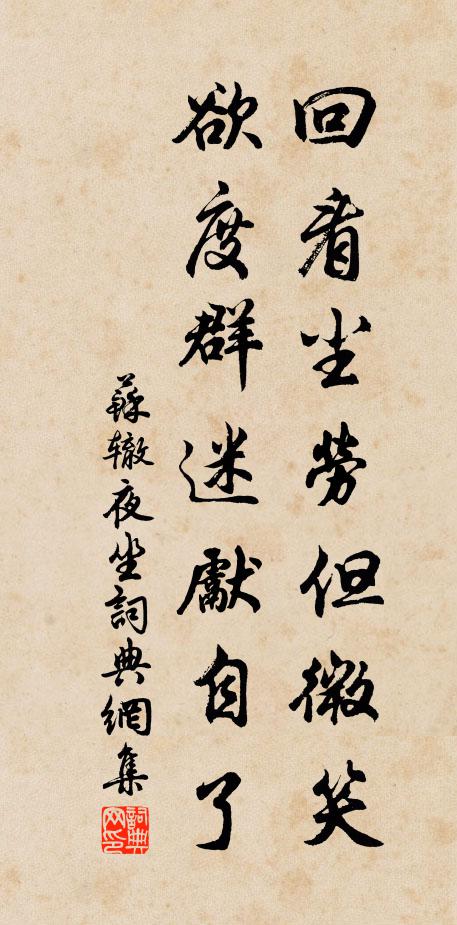 回看尘勞但微笑
欲度群迷獻自了
蘇辙夜坐詞典網集
詞典
网印